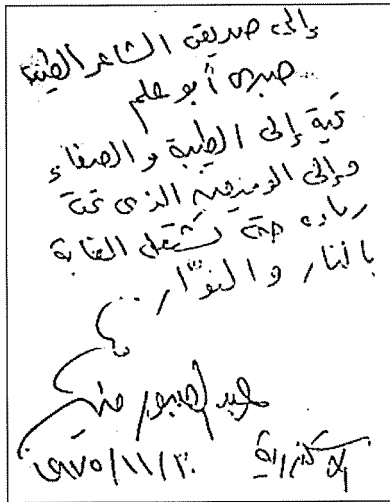 إلى صديقى الشاعر الطيب
صبرى أبو علم
تحية إلى الطيبة و الصفاء
و إلى الوميض الذى تحت
رماده حتى تشتعل الغابة
بالنار و النوّار ..
عبد الصبور منير
الإسكندرية ٣٠/١١/١٩٧٥